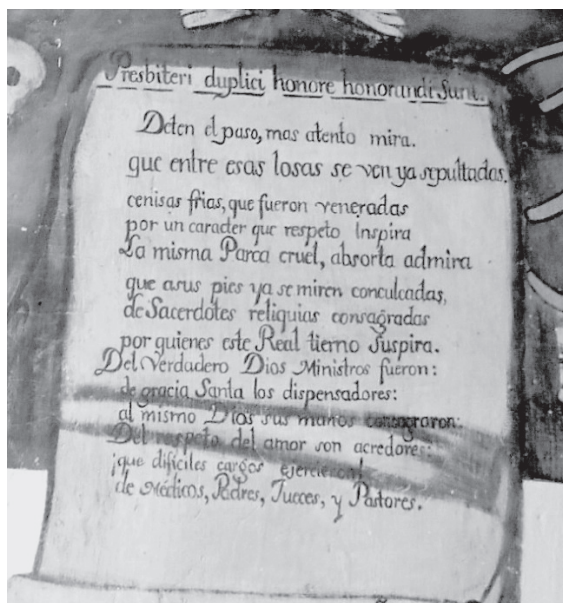 Presbiteri duplici honore honorandi Sunt.
Deten el paso, mas atento mira.
que entre esas losas se ven ya sepultadas,
cenisas frias, que fueron veneradas
por un caracter que respeto Inspira
La misma Parca cruel, absorta admira
que asus pies ya se miren conculcadas,
de Sacerdotes reliquias consagradas
por quienes este Real tierno Suspira.
Del Verdadero Dios Ministros fueron:
de gracia Santa los dispensadores:
al mismo Dios sus manos consagraron:
Del respeto del amor son acredores:
¡que dificiles cargos ejercieron!
de Médicos, Padres, Jueces, y Pastores.